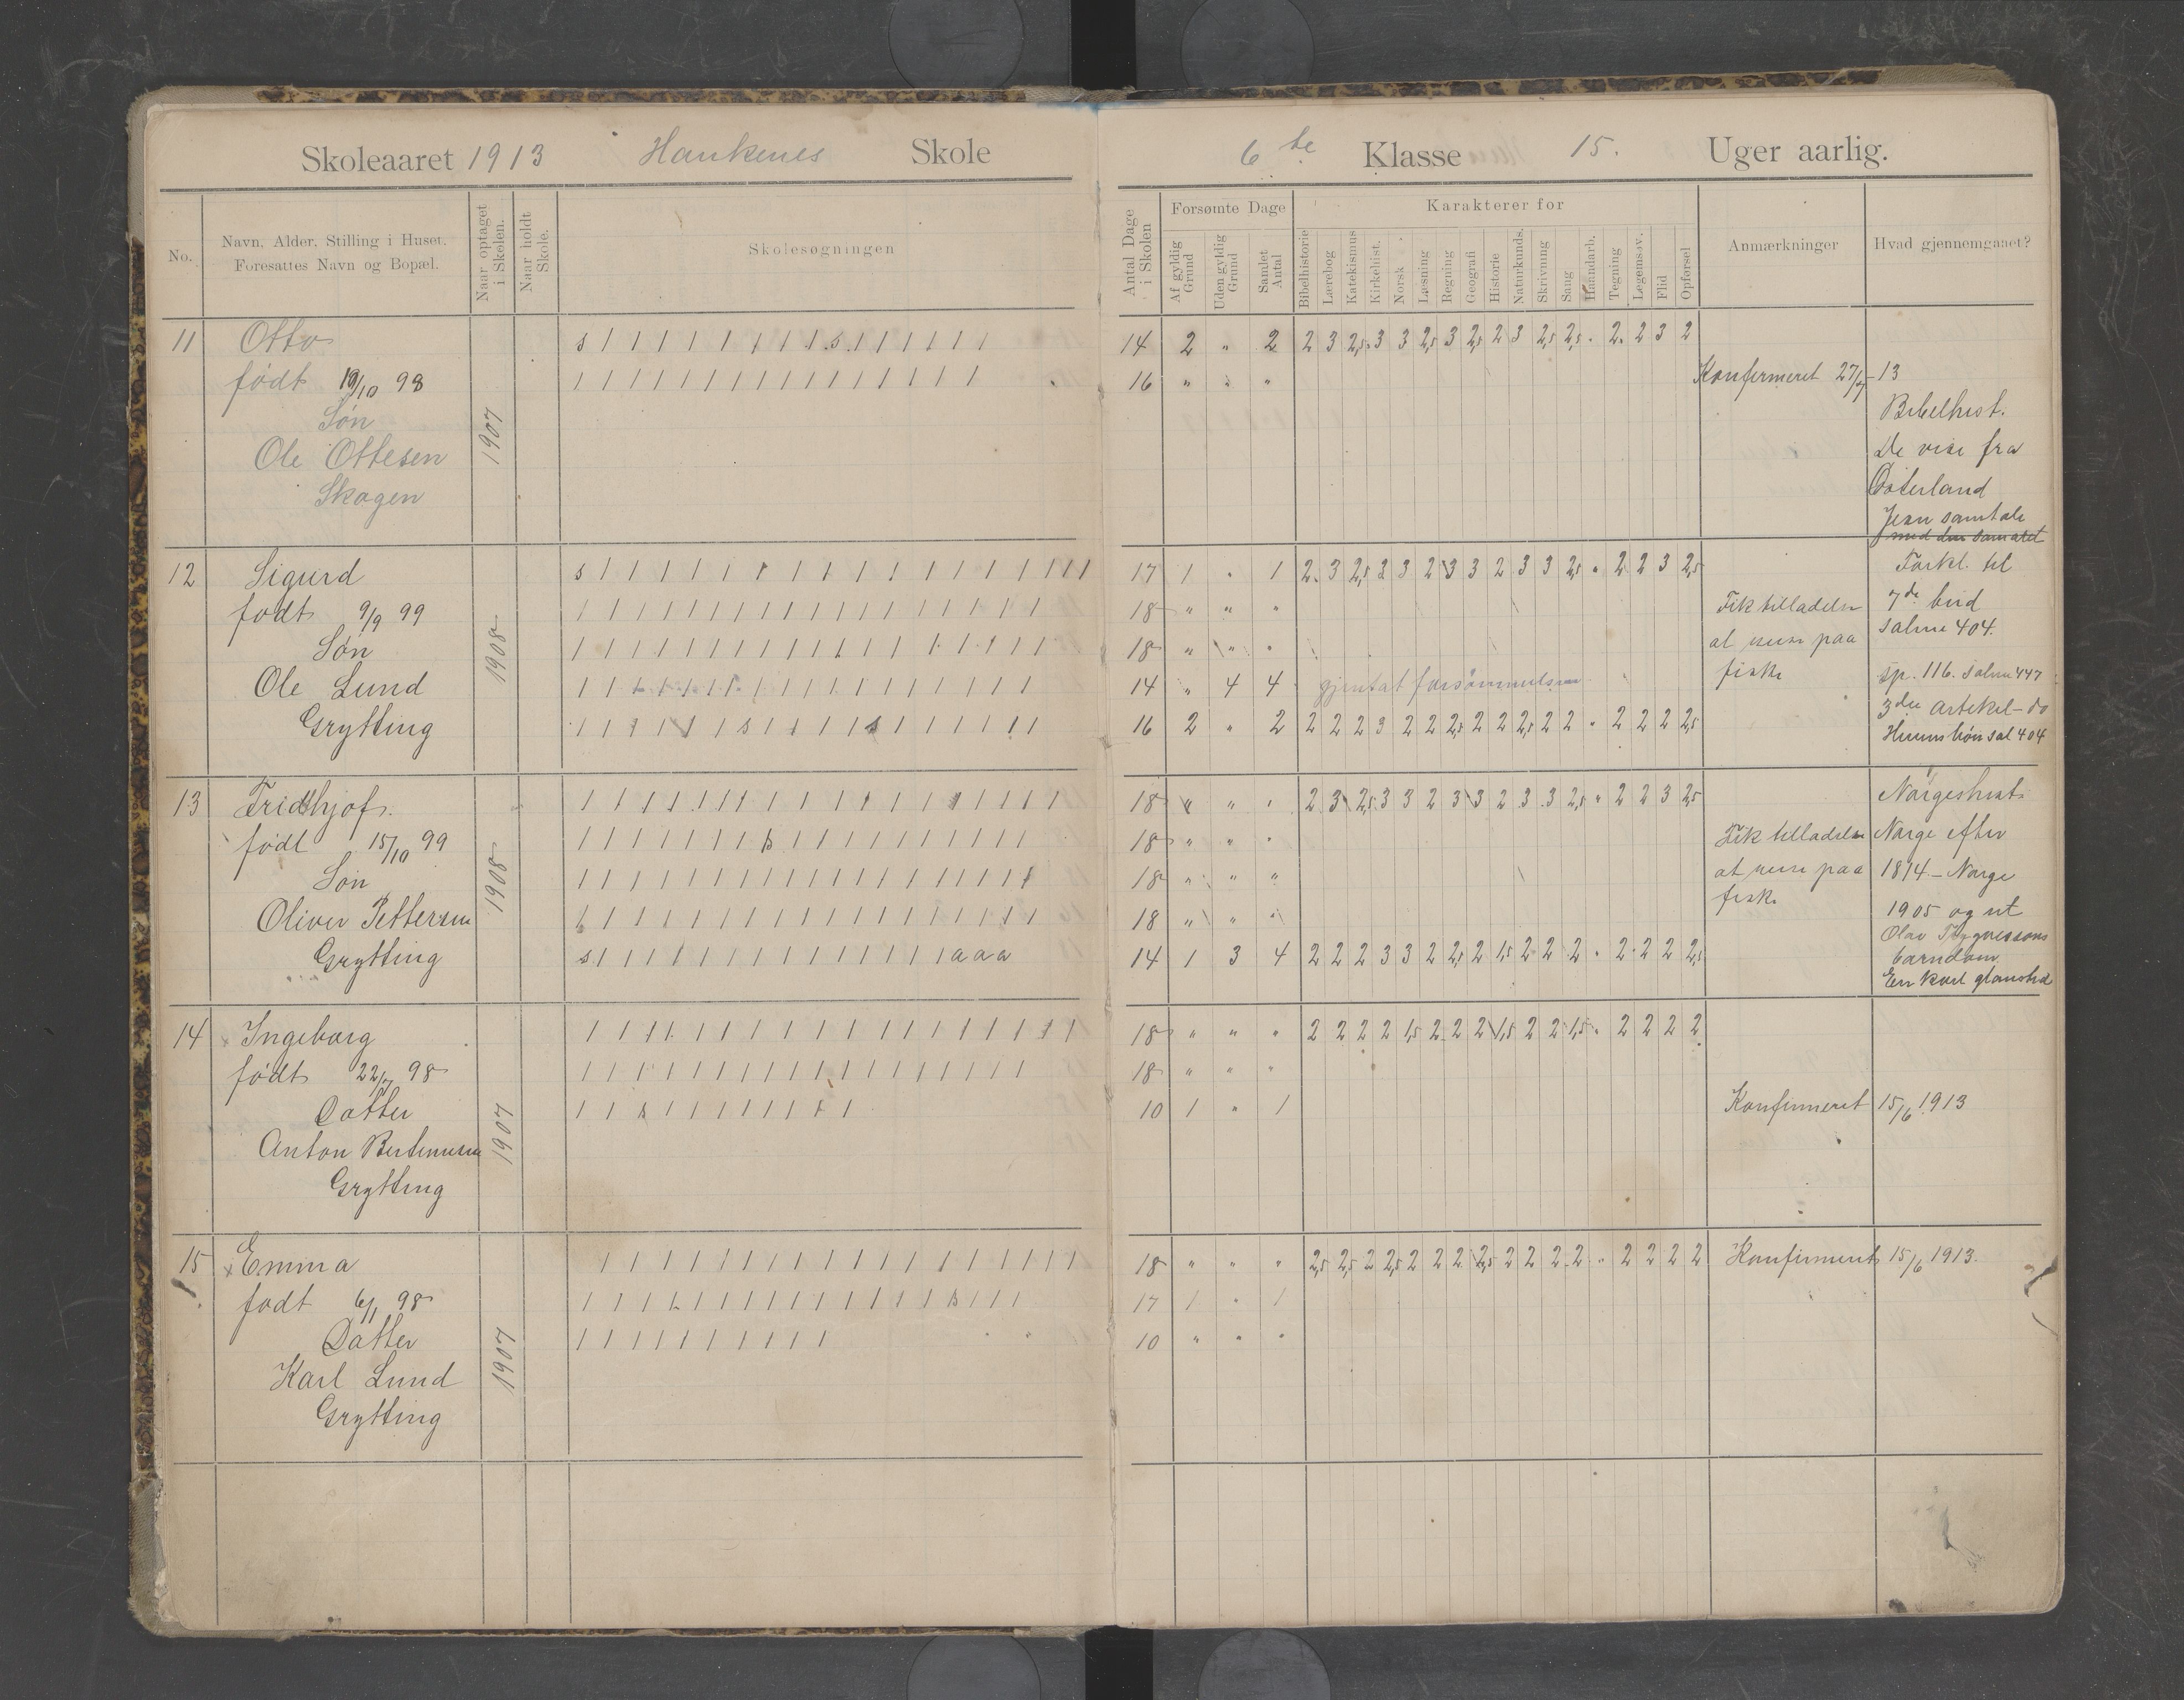 Skoleaaret 1913 Haukenes Skole
6te Klasse 15. Uger aarlig.
No.
Navn, Alder, Stilling i Huset.
Foresattes Navn og Bopæl.
Naar optaget i Skolen.
Naar holdt Skole.
Skolesøgningen
Antal Dage i Skolen
Forsømte Dage
Af gyldig Grund
Uden gyldig Grund
Samlet Antal
Karakterer for
Bibelhistorie
Lærebog
Katekismus
Kirkehist.
Norsk
Læsning
Regning
Geografi
Historie
Naturkunds.
Skrivning
Sang
Haandarb.
Tegning
Legemsøv.
Flid
Opførsel
Anmærkninger
Hvad gjennemgaaet?
11 Otto
født 19/10 98
Søn
Ole Ottesen
Skogen
1907
s 1 1 1 1 1 1 1 1 1 s 1 1 1 1 1 1
1 1 1 1 1 1 1 1 1 1 1 1 1 1 1 1
14 2 " 2 2 3 2,5 3 3 2,5 3 2,5 2 3 2,5 2,5 " 2 2 3 2
16 " " "
Konfirmeret 27/7-13
Bibelhist.
De vise fra
Østerland
Jesu samtale
med den samarit
12 Sigurd
født 9/9 99
Søn
Ole Lund
Grytting
1908
17 1 " 1 2 3 2,5 3 3 2 3 3 2 3 3 2,5 " 2 2 3 2,5
18 " " "
18 " " "
14 " 4 4 gjentat forsømmelsen
16 2 " 2 2 2 2 3 2 2 2,5 2 2 2,5 2 2 " 2 2 2 2,5
Fik tilladelse
at reise paa
fiske
Forkl. til
7de bud
Salme 404.
Sp. 116. Salme 447
3die artikel - do
Herrens bøn sal 404
13 Tridthjof.
født 15/10 99
Søn
Oliver Pettersen
Grytting
1908
18 " " " 2 3 2,5 3 3 2 3 3 2 3 3 2,5 " 2 2 3 2,5
18 " " "
18 " " "
18 " " "
s 1 1 1 1 1 1 1 1 1 1 1 1 1 1 a a a
14 1 3 4 2 2 2 3 3 2 2,5 2 1,5 2 2 2 " 2 2 2 2,5
Fik tilladelse
at reise paa
fiske
Norgeshist.
Norge efter
1814 - Norge
1905 og ut
Olav Trygvessons
barndom.
En Karl
14 Ingeborg
født 22/7 98
Datter
Anton Bertensen
Grytting
1907
18 " " " 2 2 2 2 1,5 2 2 2 1,5 2 2 1,5 " 2 2 2 2
18 " " "
10 1 " 1
Konfirmeret 15/6 1913
15 Emma
født 6/1 98
Datter
Karl Lund
Grytting
1907
18 " " " 2,5 2,5 2 2,5 2 2 2 2,5 2 2 2 2 " 2 2 2 2
17 1 " 1
10 " " "
Konfirmeret 15/6 1913.